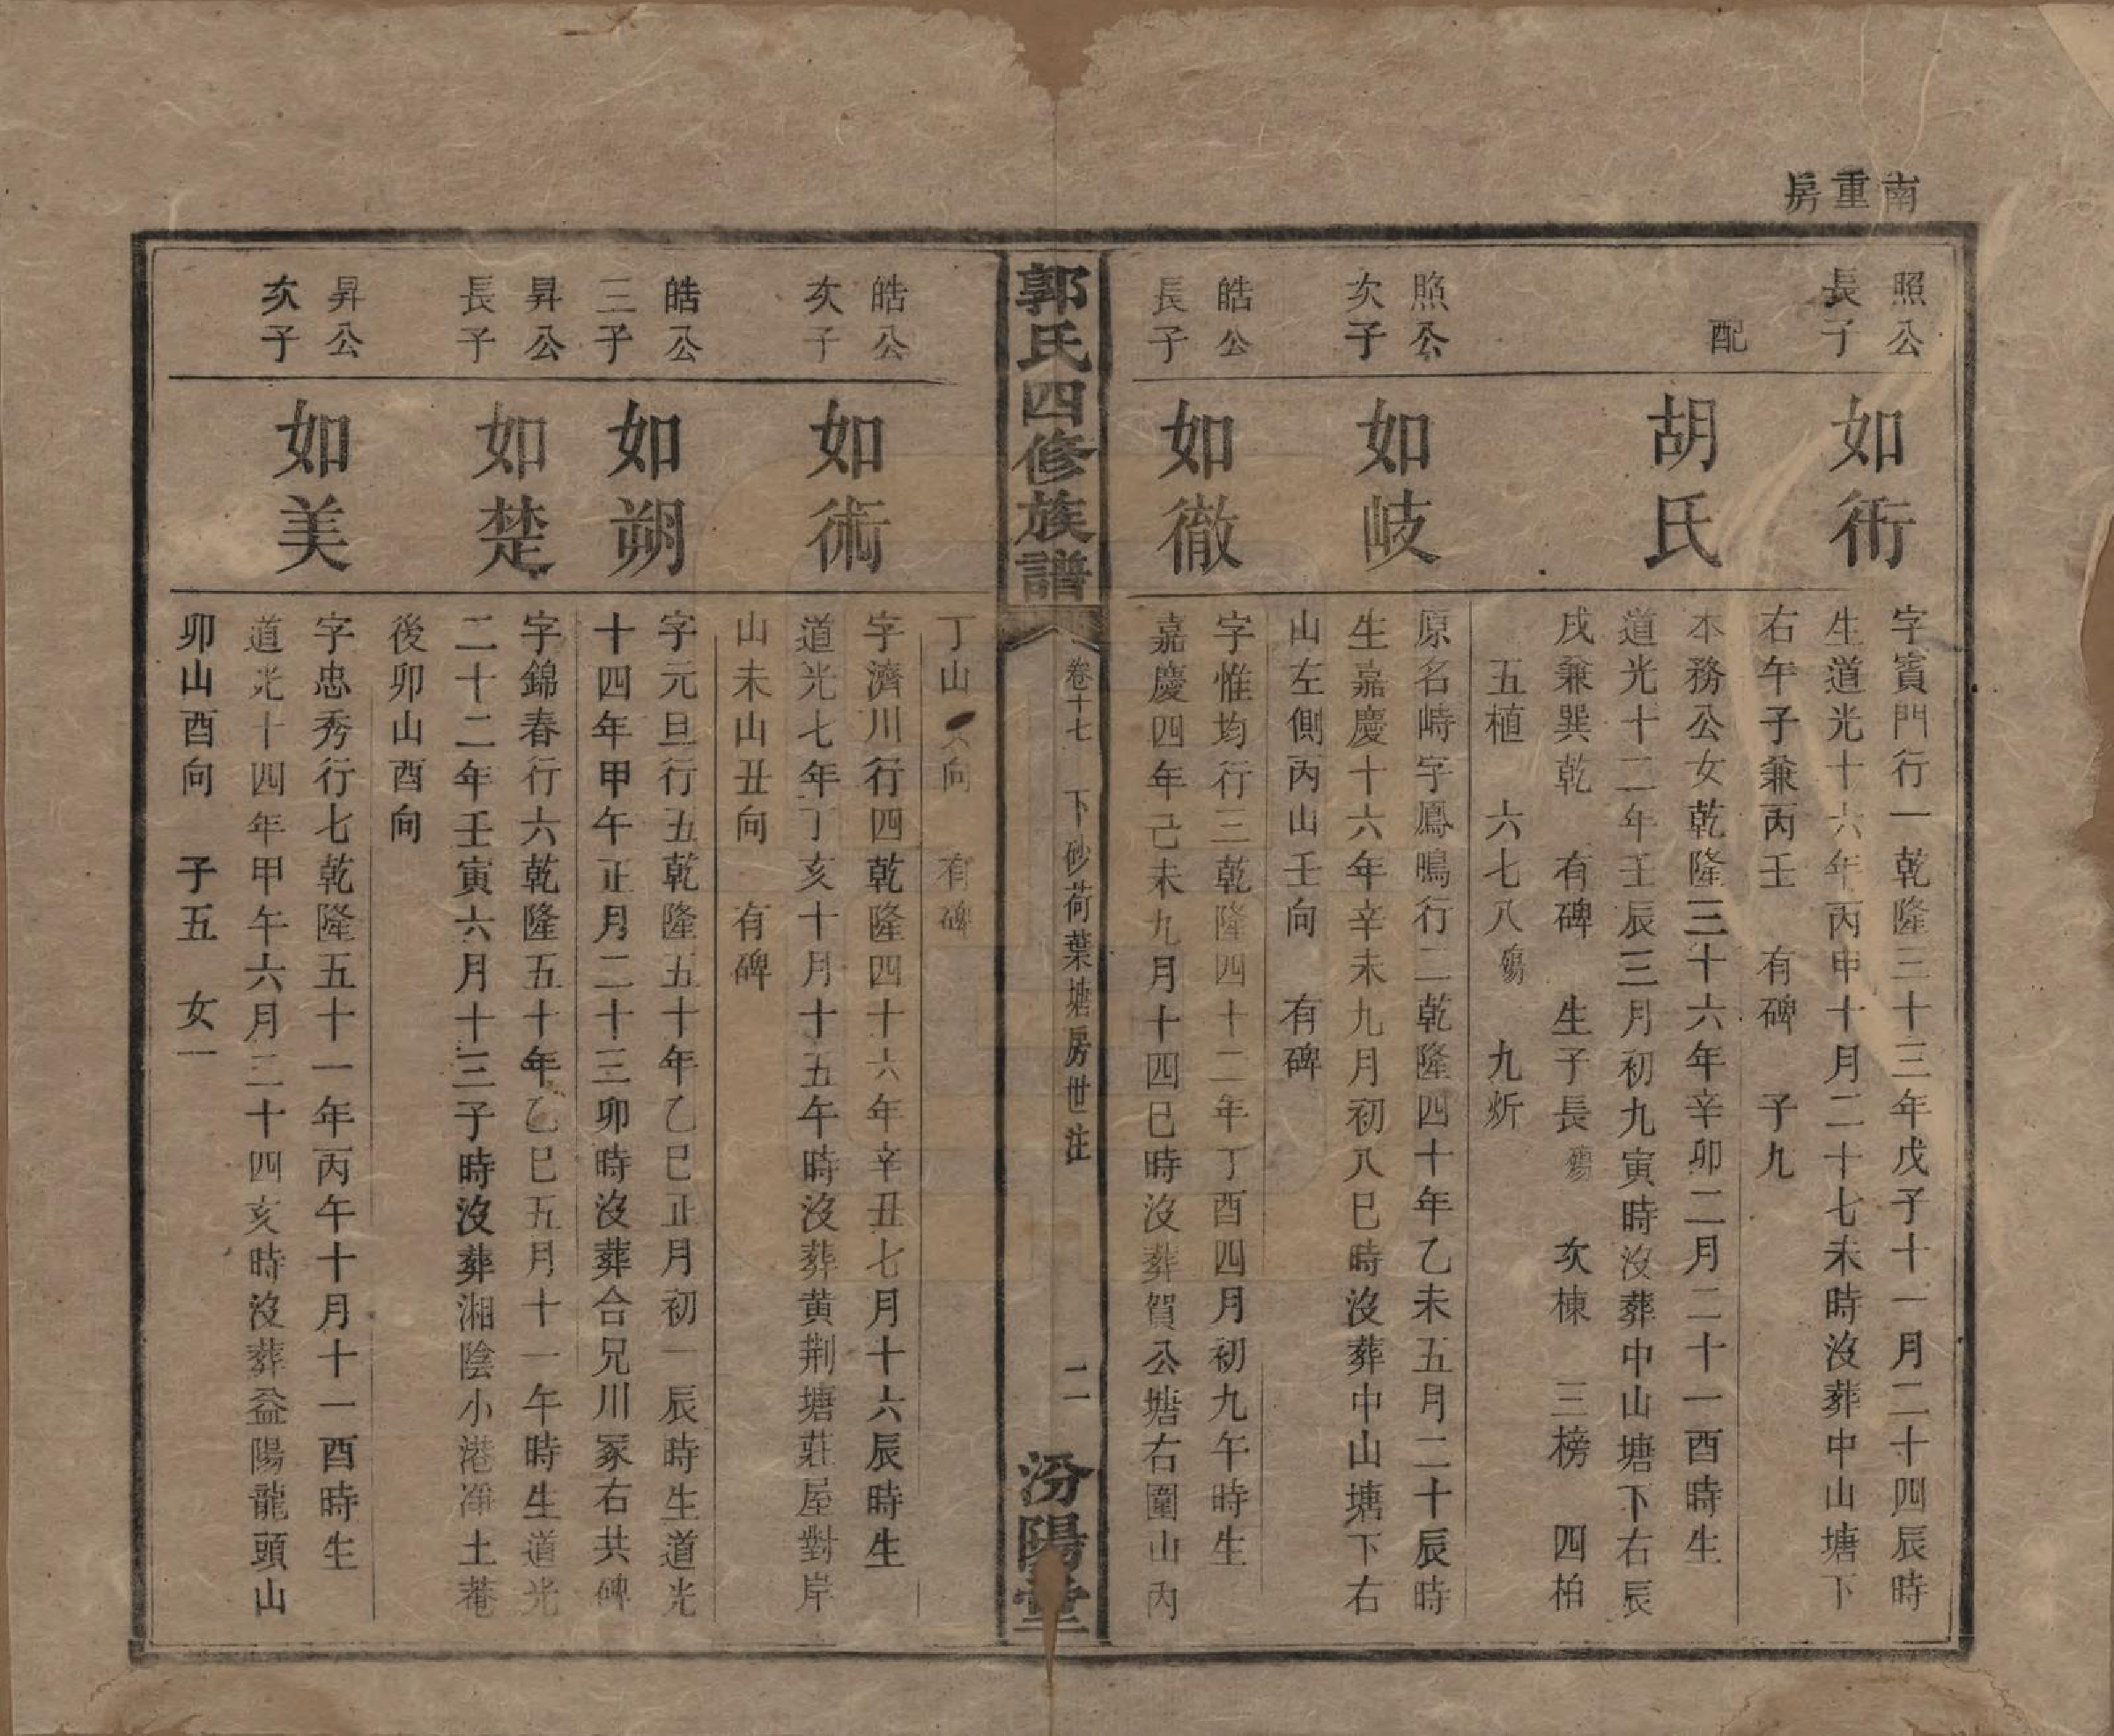 南重房
照公長子
如衎
字賓門行一乾隆三十三年戊子十一月二十四辰時
生道光十六年丙申十月二十七未時沒葬中山塘下
右午子兼丙壬　有碑　子九
配
胡氏
本務公女乾隆三十六年辛卯二月二十一酉時生
道光十二年壬辰三月初九寅時沒葬中山塘下右辰
戌兼巽乾　有碑　生子長殤　次棟　三榜　四柏
五植　六七八殤　九炘
照公次子
如岐
原名峙字鳳鳴行二乾隆四十年乙未五月二十辰時
生嘉慶十六年辛未九月初八巳時沒葬中山塘下右
山左側丙山壬向　有碑
皓公長子
如徹
字惟均行三乾隆四十二年丁酉四月初九午時生
嘉慶四年己未九月十四巳時沒葬賀公塘右圍山內
郭氏四修族譜
卷十七　下砂荷葉塘房世注
二
汾陽堂
丁山　向　有碑
皓公次子
如術
字濟川行四乾隆四十六年辛丑七月十六辰時生
道光七年丁亥十月十五午時沒葬黄荆塘莊屋對岸
山未山丑向　有碑
皓公三子
如朔
字元旦行五乾隆五十年乙巳正月初一辰時生道光
十四年甲午正月二十三卯時沒葬合兄川冢右共碑
昇公長子
如楚
字錦春行六乾隆五十年乙巳五月十一午時生道光
二十二年壬寅六月十三子時沒葬湘陰小港淨土菴
後卯山酉向
昇公次子
如美
字忠秀行七乾隆五十一年丙午十月十一酉時生
道光十四年甲午六月二十四亥時沒葬益陽龍頭山
卯山酉向　子五　女一